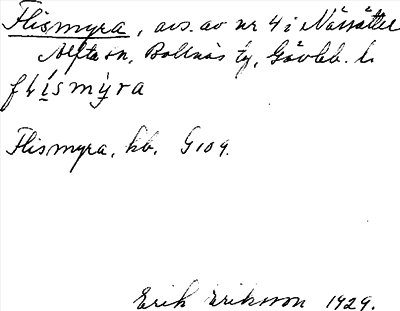 Flismyra, avs. av nr 4 i Näsätter
Alfta sn, Bollnäs tg, Gävleb. l.
flísmy̆ra
Flismyra, kb. G109.
Erik Eriksson 1929.